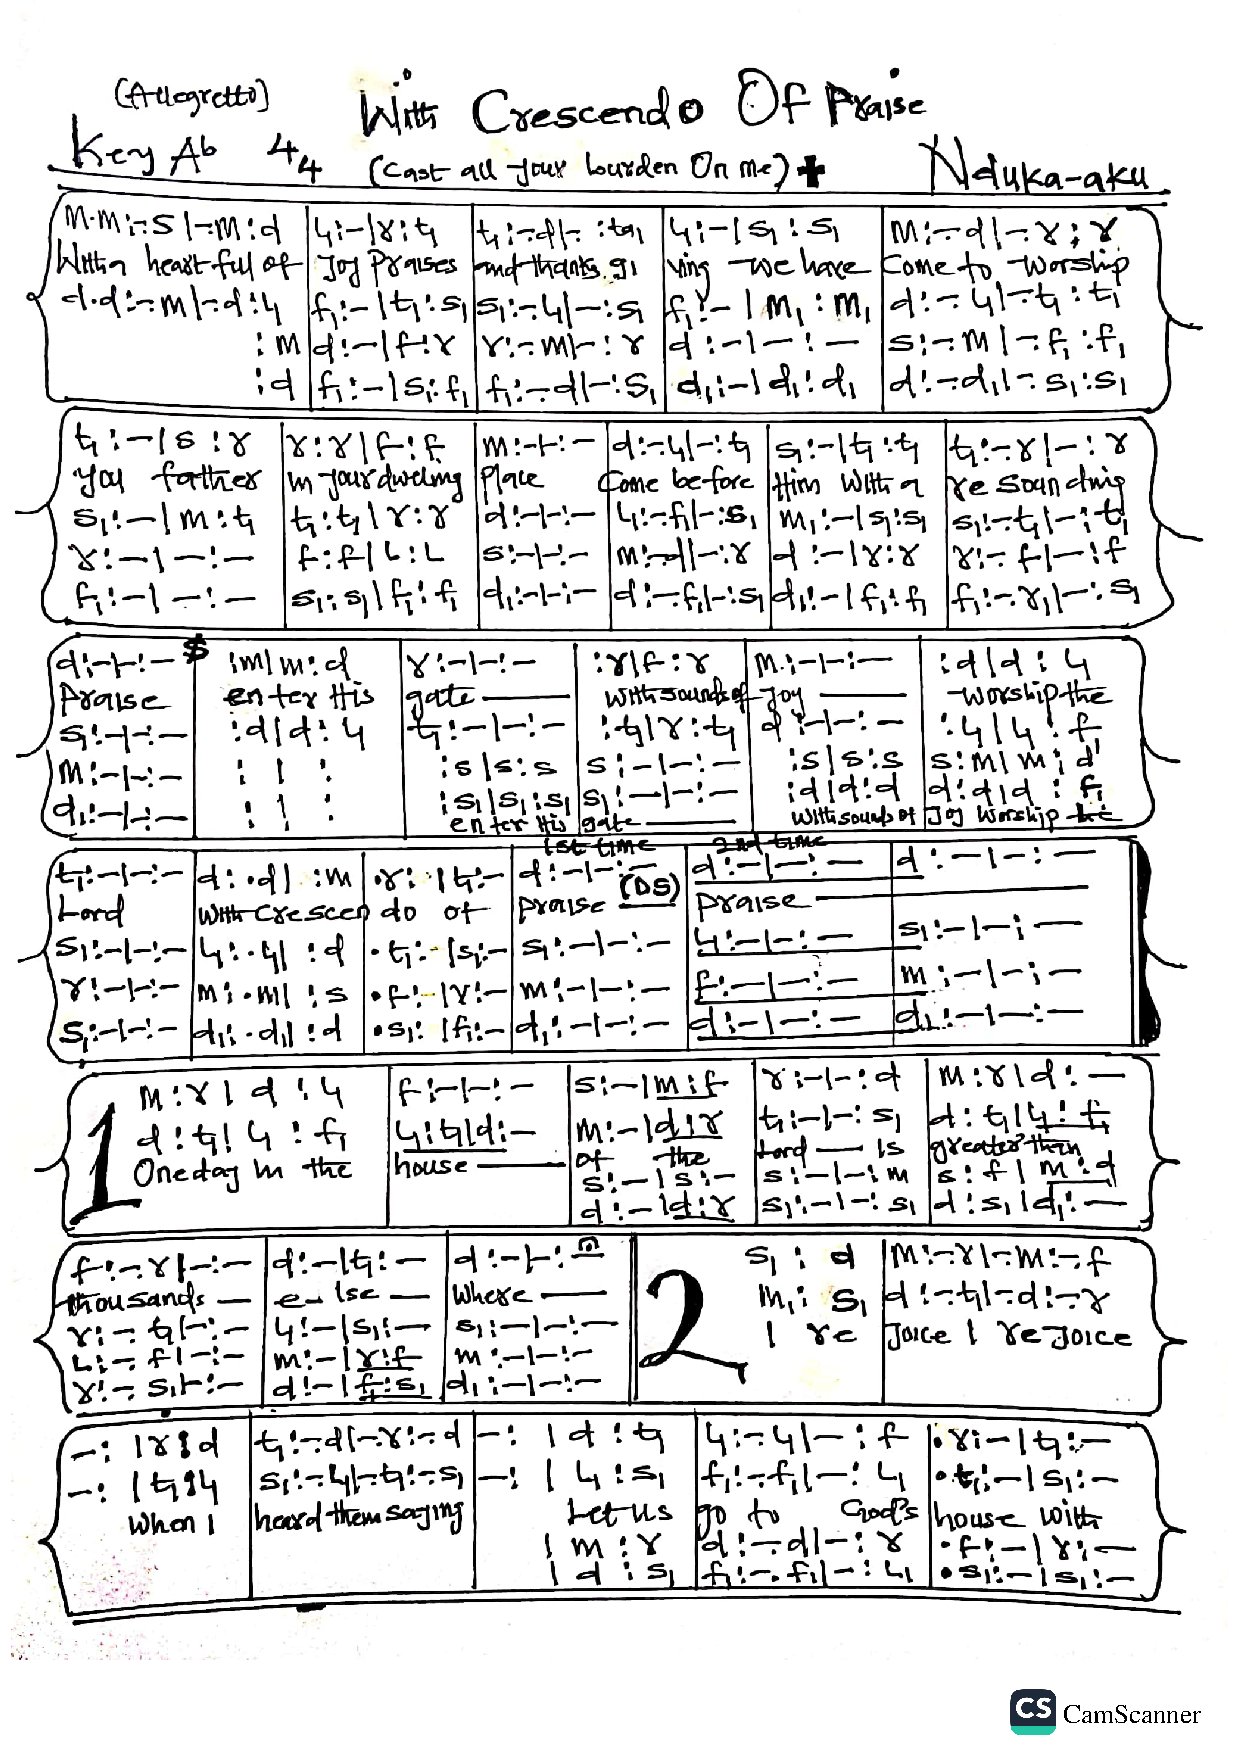 (Allegretto) With Crescendo Of Praise
Key Ab 4/4 (Cast all your burden On me) + Nduka-aku
m.m:-.s|-.m:d | l₁:-|r:t₁ | t₁:-.d|-.:ta₁ | l₁:-|s₁:s₁ | m:-.d|-.r:r
With a heart full of Joy Praises and thanks gi ving we have Come to Worship
d.d:-.m|-.d:l₁ | f₁:-|t₁:s₁ | s₁:-.l₁|-:s₁ | f₁:-|m₁:m₁ | d:-.l₁|-.t₁:t₁
:m | d:-|f:r | r:-.m|-:r | d:-|-:- | s:-.m|-.f₁:f₁
:d | f₁:-|s₁:f₁ | f₁:-.d|-:s₁ | d₁:-|d₁:d₁ | d:-.d₁|-.s₁:s₁
t₁:-|s:r | r:r|f:f | m:-|-:- | d:-.l₁|-:t₁ | s₁:-|t₁:t₁ | t₁:-.r|-:r
You father in your dweling Place Come before Him with a re sounding
s₁:-|m:t₁ | t₁:t₁|r:r | d:-|-:- | l₁:-.f₁|-:s₁ | m₁:-|s₁:s₁ | s₁:-.t₁|-:t₁
r:-|-:- | f:f|l:l | s:-|-:- | m:-.d|-:r | d:-|r:r | r:-.f|-:f
f₁:-|-:- | s₁:s₁|f₁:f₁ | d₁:-|-:- | d:-.f₁|-:s₁ | d₁:-|f₁:f₁ | f₁:-.r₁|-:s₁
d:-|-:- $ | :m|m:d | r:-|-:- | :r|f:r | m:-|-:- | :d|d:l₁
Praise enter His gate With sounds of Joy Worship the
s₁:-|-:- | :d|d:l₁ | t₁:-|-:- | :t₁|r:t₁ | d:-|-:- | :l₁|l₁:f
m:-|-:- | : | : | :s|s:s | s:-|-:- | :s|s:s | s:m|m:d'
d₁:-|-:- | : | : | :s₁|s₁:s₁ | s₁:-|-:- | :d|d:d | d:d|d:f₁
enter His gate With sounds of Joy Worship the
1st time 2nd time
t₁:-|-:- | d:.d| :m | .r:-|t₁:- | d:-|-:- (DS) | d:-|-:- | d:-|-:-
Lord With Crescen do of praise praise
s₁:-|-:- | l₁:.l₁| :d | .t₁:-|s₁:- | s₁:-|-:- | l₁:-|-:- | s₁:-|-:-
r:-|-:- | m:.m| :s | .f:-|r:- | m:-|-:- | f:-|-:- | m:-|-:-
s₁:-|-:- | d₁:.d₁| :d | .s₁: |f₁:- | d₁:-|-:- | d:-|-:- | d₁:-|-:-
1 m:r|d:l₁ | f:-|-:- | s:-|m:f | r:-|-:d | m:r|d:-
d:t₁|l₁:f₁ | l₁:t₁|d:- | m:-|d:r | t₁:-|-:s₁ | d:t₁|l₁:f₁
One day in the house of the Lord is greater than
s:-|s:- | s:-|-:m | s:f|m:d
d:-|d:r | s₁:-|-:s₁ | d:s₁|d₁:-
f:-.r|-:- | d:-|t₁:- | d:-|-:- 2 s₁:d | m:-.r|-.m:-.f
thousands e-lse Where m₁:s₁ | d:-.t₁|-.d:-.r
r:-.t₁|-:- | l₁:-|s₁:- | s₁:-|-:- I re Joice I rejoice
l:-.f|-:- | m:-|r:f | m:-|-:-
r:-.s₁|-:- | d:-|f₁:s₁ | d₁:-|-:-
-: |r:d | t₁:-.d|-.r:-.d | -: |d:t₁ | l₁:-.l₁|-:f | .r:-|t₁:-
-: |t₁:l₁ | s₁:-.l₁|-.t₁:-.s₁ | -: |l₁:s₁ | f₁:-.f₁|-:l₁ | .t₁:-|s₁:-
When I heard them saying Let us go to God's house with
|m:r | d:-.d|-:r | .f:-|r:-
|d:s₁ | f₁:-.f₁|-:l₁ | .s₁:-|s₁:-
CS CamScanner